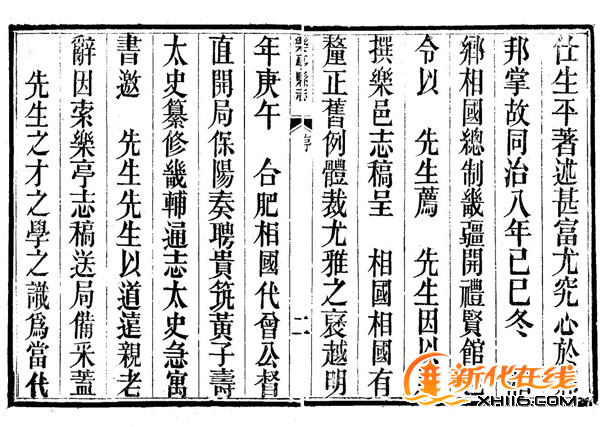 仕生平著述甚富尤究心於
邦掌故同治八年己巳冬
鄉相國總制畿疆開禮賢館
令以　先生薦　先生因以
撰樂邑志稿呈　相國相國有
釐正舊例體裁尤雅之褒越明
樂亭縣志　序　二
年庚午　合肥相國代曾公督
直開局保陽奏聘貴筑黃子壽
太史纂修畿輔通志太史急寓
書邀　先生先生以道遠親老
辭因索樂亭志稿送局備采蓋
先生之才之學之識爲當代
新化在线
XH116.COM